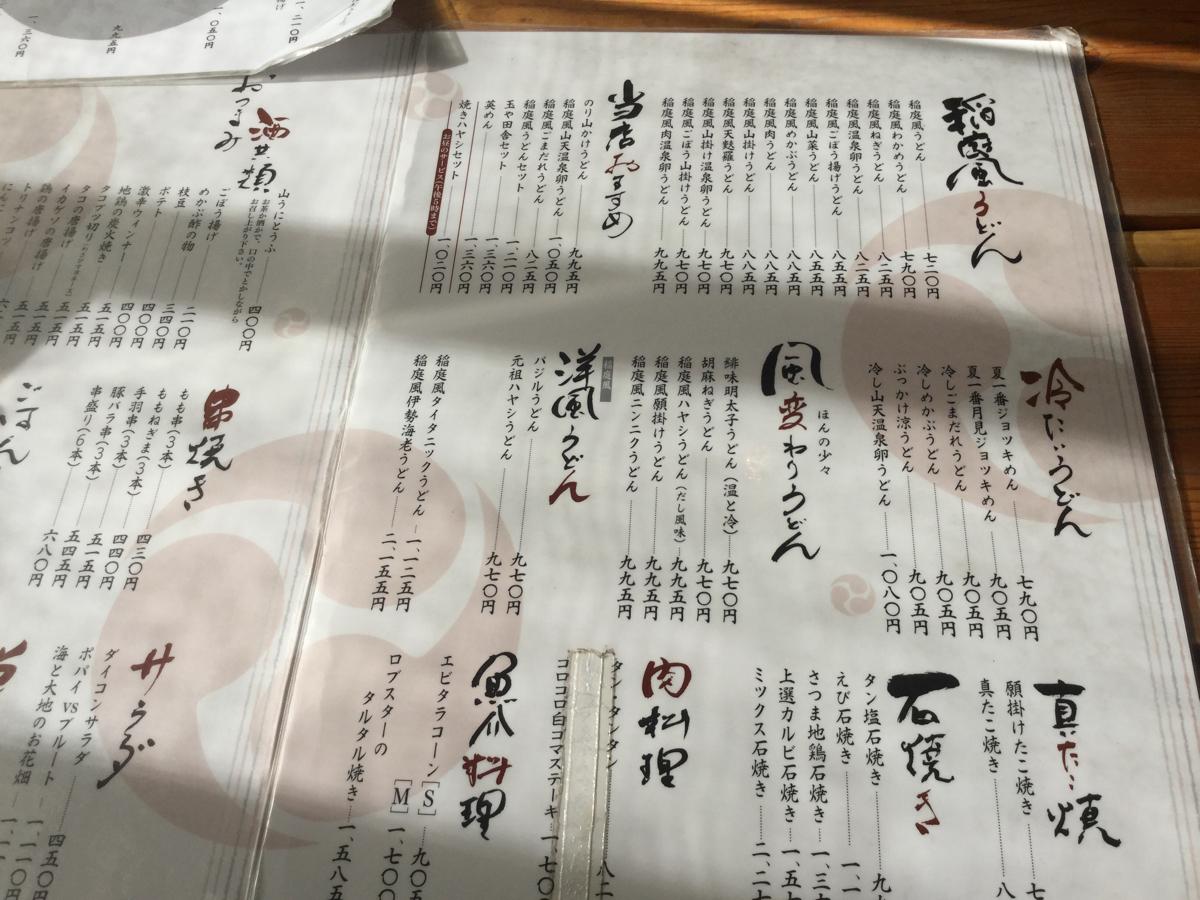 稲庭風うどん
稲庭風うどん 七二〇円
稲庭風わかめうどん 七九〇円
稲庭風ねぎうどん 八二五円
稲庭風温泉卵うどん 八二五円
稲庭風ごぼう揚げうどん 八五五円
稲庭風山菜うどん 八五五円
稲庭風めかぶうどん 八八五円
稲庭風肉うどん 八八五円
稲庭風山掛けうどん 八八五円
稲庭風天麩羅うどん 九七〇円
稲庭風山掛け温泉卵うどん 九七〇円
稲庭風ごぼう山掛けうどん 九七〇円
稲庭風肉温泉卵うどん 九九五円
当店おすすめ
のり山かけうどん 九九五円
稲庭風山天温泉卵うどん 一、〇五〇円
稲庭風ごまだれうどん 八二五円
稲庭風うどんセット 一、二一〇円
玉や田舎セット 一、三六〇円
英めん 一、三六〇円
焼きハヤシセット 一、〇二〇円
お昼のサービス(午後5時まで)
冷たいうどん
夏一番ジョッキめん 七九〇円
夏一番月見ジョッキめん 九〇五円
冷しごまだれうどん 九〇五円
冷しめかぶうどん 九〇五円
ぶっかけ涼うどん 九〇五円
冷し山天温泉卵うどん 一、〇八〇円
ほんの少々
風変わりうどん
緋味明太子うどん(温と冷) 九七〇円
胡麻ねぎうどん 九七〇円
稲庭風ハヤシうどん(だし風味) 九九五円
稲庭風願掛けうどん 九九五円
稲庭風ニンニクうどん 九九五円
稲庭風
洋風うどん
バジルうどん 九七〇円
元祖ハヤシうどん 九七〇円
稲庭風タイタニックうどん 一、一二五円
稲庭風伊勢海老うどん 二、一五五円
真たこ焼
願掛けたこ焼き 七
真たこ焼き 八
石焼き
タン塩石焼き 九
えび石焼き 一、一
さつま地鶏石焼き 一、三
上選カルビ石焼き 一、五
ミックス石焼き 二、二
肉料理
タン・タンタン 八二
コロコロ白コマステーキ 一、七〇
魚介料理
エビタラコーン[S] 九〇五
[M] 一、七〇
ロブスターの
タルタル焼き 一、五八五
酒の肴類
おつまみ
山うにとうふ 四〇〇円
お茶か酒かで、口の中でとかしながら
お召し上がり下さい。
ごぼう揚げ 二一〇円
めかぶ酢の物 三四〇円
枝豆 四〇〇円
ポテト 四〇〇円
激辛ウィンナー 五一五円
地鶏の炭火焼き 五一五円
タコブツ切り 五一五円
タコの唐揚げ 五一五円
イカゲソの唐揚げ 五一五円
鶏の唐揚げ
トリナンコツ
串焼き
もも串(3本) 四三〇円
ももねぎま(3本) 四四〇円
手羽串(3本) 五一五円
豚バラ串(3本) 五四五円
串盛り(6本) 六八〇円
ごはん
サラダ
ダイコンサラダ 四五〇
ポパイvsブルート 一、一
海と大地のお花畑 一、一